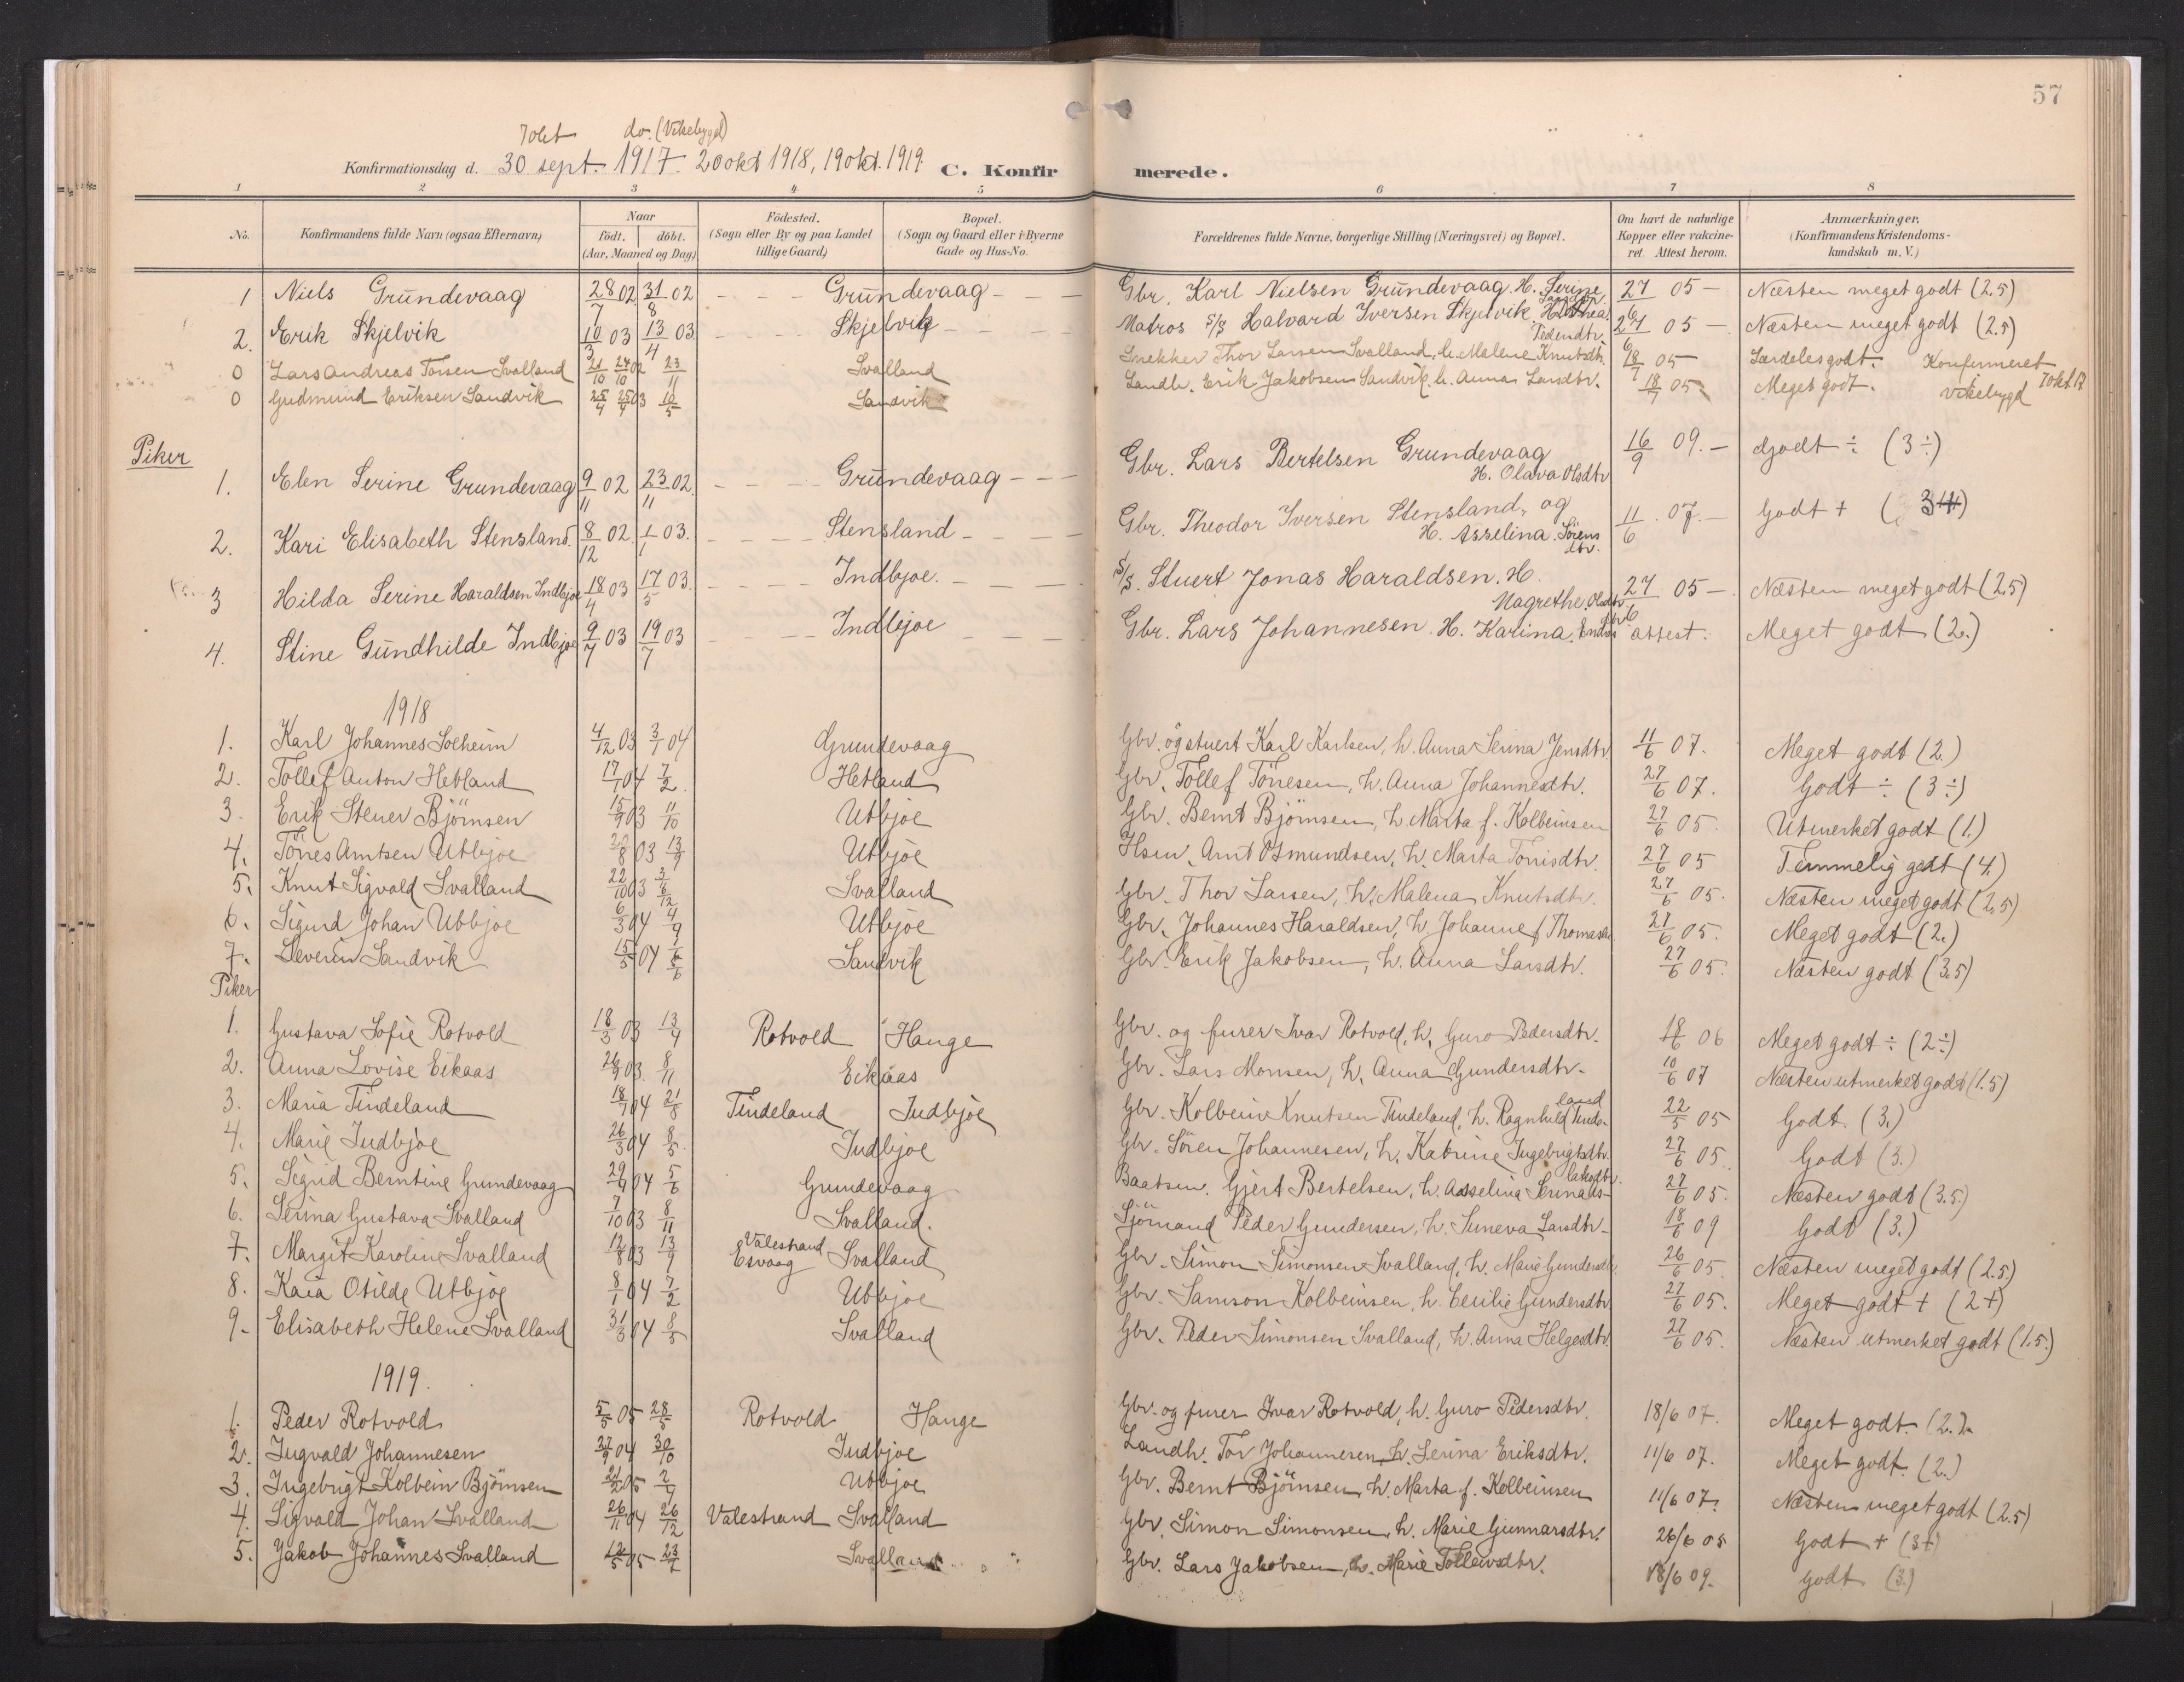 57
7 okt do. (Vikebygd)
Konfirmationsdag d. 30 sept. 1917. 20 okt 1918, 19 okt. 1919. C. Konfirmerede.
1 2 3 4 5 6 7 8
No. Konfirmandens fulde Navn (ogsaa Efternavn) Naar födt. döbt. (Aar, Maaned og Dag) Födested. (Sogn eller By og paa Landet tillige Gaard) Bopæl. (Sogn og Gaard eller i Byerne Gade og Hus-No. Forældrenes fulde Navne, borgerlige Stilling (Næringsvei) og Bopæl. Om havt de naturlige Kopper eller vakcineret Attest herom. Anmærkninger. (Konfirmandens Kristendomskundskab m. V.)
1 Niels Grundevaag 28/7 02 31/8 02 - - - Grundevaag - - - Gbr. Karl Nielsen Grundevaag. H. Serine 27/6 05 - Næsten meget godt (2.5)
2. Erik Skjelvik 10/3 03 13/4 03. - - - Skjelvik - - - Matros S/S Halvard Iversen Skjelvik H. Thea Pedersdtr. 27/6 05 - Næsten meget godt (2.5)
0 Lars Andreas Torsen Svalland 21/10 24/10 02 23/11 Svalland Snekker Thor Larsen Svalland, h. Malene Knutsdtr. 18/7 05 Særdeles godt. Konfirmeret
0 Gudmund Eriksen Sandvik 25/4 25/4 03 10/5 Sandvik Landh. Erik Jakobsen Sandvik, h. Anna Larsdtr. 18/7 05 Meget godt. Vikebygd 7 okt 17
Piker
1. Elen Serine Grundevaag 9/11 02 23/11 02. - - - Grundevaag - - - Gbr. Lars Bertelsen Grundevaag H. Olava Olsdtr 16/9 09. - Godt ÷ (3 ÷)
2. Kari Elisabeth Stensland. 8/12 02. 1/1 03. - - - Stensland - - - Gbr. Theodor Iversen Stensland, og H. Asselina Sörensdtr. 11/6 07. - Godt + (3+)
3 Hilda Serine Haraldsen Indbjoe 18/4 03 17/5 03. - - - Indbjoe. - - - S/S. Stuert Jonas Haraldsen. H. Magrethe Olsdtr 27/6 05 - Næsten meget godt (2.5)
4. Stine Gundhilde Indbjoe 9/7 03 19/7 03 - - - Indbjoe - - - Gbr. Lars Johannesen. H. Karina Endresdtr attest. Meget godt (2.)
1918
1. Karl Johannes Solheim 4/12 03 3/1 04 Grundevaag Gbr. og stuert Karl Karlsen, h. Anna Serina Jensdtr 11/6 07. Meget godt (2.)
2. Tollef Anton Hetland 17/1 04 7/2. Hetland Gbr. Tollef Törresen, h. Anna Johannesdtr. 27/6 07. Godt ÷ (3 ÷)
3. Erik Stener Björnsen 15/9 03 11/10 Utbjoe Gbr. Bernt Björnsen, h. Marta f. Kolbeinsen 27/6 05. Utmerket godt (1.)
4. Törres Arntsen Utbjoe 20/8 03 13/9 Utbjoe Hsm. Arnt Osmundsen, h. Marta Torrisdtr. 27/6 05 Temmelig godt (4.)
5. Knut Sigvald Svalland 22/10 03 Svalland Gbr. Thor Larsen, h. Malena Knutsdtr. 27/6 05. Næsten meget godt (2.5)
6. Sigurd Johan Utbjoe 6/3 04 4/9 Utbjoe Gbr. Johannes Haraldsen, h. Johanne f. Thomasen 27/6 05. Meget godt (2.)
7. Severin Sandvik 15/5 04 Sandvik Gbr. Erik Jakobsen, h. Anna Larsdtr. 27/6 05. Næsten godt (3.5)
Piker
1. Gustava Sofie Rotvold 18/3 03 13/4 Rotvold Hauge Gbr. og furer Ivar Rotvold, h. Guro Pedersdtr. 18/6 06 Meget godt ÷ (2 ÷)
2. Anna Lovise Eikaas 26/9 03. 8/11 Eikaas Gbr. Lars Monsen, h. Anna Gundersdtr. 10/6 07 Næsten utmerket godt (1.5)
3. Maria Tindeland 18/7 04 21/8 Tindeland Indbjoe Gbr. Kolbein Knutsen Tindeland, h. Ragnhild Tindeland 22/5 05 Godt. (3.)
4. Marie Indbjoe 26/3 04 8/5. Indbjoe Gbr. Sören Johannesen, h. Katrine Ingebrigtsdtr. 27/6 05. Godt (3.)
5. Sigrid Berntine Grundevaag 29/4 04 5/6 Grundevaag Baatsm. Gjert Bertelsen, h. Asselina Serina 27/6 05. Næsten godt (3.5)
6. Serina Gustava Svalland 7/10 03 8/11 Svalland. Sjömand Peder Gundersen, h. Suneva Larsdtr. 18/6 09 Godt (3.)
7. Margit Karoline Svalland 12/8 03 13/9 Valestrand Esvaag Svalland Gbr. Simon Simonsen Svalland, h. Marie Gundersdtr. 26/6 05. Næsten meget godt (2.5.)
8. Kaia Otilde Utbjoe 8/1 04 7/2 Utbjoe Gbr. Samson Kolbeinsen, h. Cecilie Gundersdtr 27/6 05. Meget godt + (2 +)
9. Elisabeth Helene Svalland 31/3 04 8/5 Svalland Gbr. Peder Simonsen Svalland, h. Anna Helgesdtr. 27/6 05. Næsten utmerket godt (1.5.)
1919.
1. Peder Rotvold 5/5 05 28/5 Rotvold Hauge Gbr. og furer Ivar Rotvold, h. Guro Pedersdtr. 18/6 07. Meget godt. (2.)
2. Ingvald Johannesen 27/9 04 30/10 Indbjoe Landh. Tor Johannesen, h. Serina Eriksdtr. 11/6 07. Meget godt. (2.)
3. Ingebrigt Kolbein Björnsen 21/2 05 2/4 Utbjoe Gbr. Bernt Björnsen, h. Marta f. Kolbeinsen 11/6 07. Næsten meget godt (2.5)
4. Sigvald Johan Svalland 26/11 04 26/12 Valestrand Svalland Gbr. Simon Simonsen, h. Marie Gunnarsdtr. 26/6 05 Godt + (3+)
5. Jakob Johannes Svalland 12/5 05 23/7 Svalland Gbr. Lars Jakobsen, h. Marie Tollevsdtr. 18/6 09. Godt (3.)